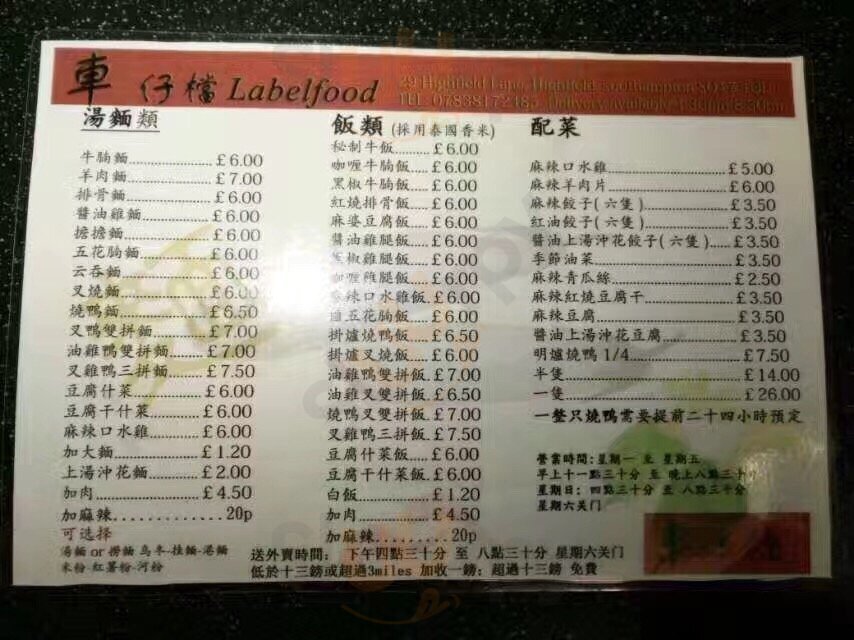 車仔檔 Labelfood
29 Highfield Lane, Highfield, southampton
TEL 07838172485 Delivery available
湯麵類
牛腩麵 £6.00
羊肉麵 £7.00
排骨麵 £6.00
醬油雞麵 £6.00
擔擔麵 £6.00
五花腩麵 £6.00
云吞麵 £6.00
叉燒麵 £6.00
燒鴨麵 £6.50
叉鴨雙拼麵 £7.00
油雞鴨雙拼麵 £7.00
叉雞鴨三拼麵 £7.50
豆腐什菜 £6.00
豆腐干什菜 £6.00
麻辣口水雞 £6.00
加大麵 £1.20
上湯沖花麵 £2.00
加肉 £4.50
加麻辣 20p
可选择
湯麵 or 撈麵 烏冬-挂麵-港麵
米粉-紅薯粉-河粉
飯類 (採用泰國香米)
秘制牛飯 £6.00
咖喱牛腩飯 £6.00
黑椒牛腩飯 £6.00
紅燒排骨飯 £6.00
麻婆豆腐飯 £6.00
醬油雞腿飯 £6.00
椒雞腿飯 £6.00
咖喱雞腿飯 £6.00
麻辣口水雞飯 £6.00
五花腩飯 £6.00
掛爐燒鴨飯 £6.50
掛爐叉燒飯 £6.00
油雞鴨雙拼飯 £7.00
油雞叉雙拼飯 £6.50
燒鴨叉雙拼飯 £7.00
叉雞鴨三拼飯 £7.50
豆腐什菜飯 £6.00
豆腐干什菜飯 £6.00
白飯 £1.20
加肉 £4.50
加麻辣 20p
配菜
麻辣口水雞 £5.00
麻辣羊肉片 £6.00
麻辣餃子(六隻) £3.50
紅油餃子(六隻) £3.50
醬油上湯沖花餃子(六隻) £3.50
季節油菜 £3.50
麻辣青瓜絲 £2.50
麻辣紅燒豆腐干 £3.50
麻辣豆腐 £3.50
醬油上湯沖花豆腐 £3.50
明爐燒鴨 1/4 £7.50
半隻 £14.00
一隻 £26.00
一整只燒鴨需要提前二十四小時預定
營業時間:星期一 至 星期五
早上十一點三十分 至 晚上八點三十分
星期日: 四點三十分 至 八點三十分
星期六关门
送外賣時間: 下午四點三十分 至 八點三十分 星期六关门
低於十三鎊或超過3miles 加收一鎊; 超過十三鎊 免費